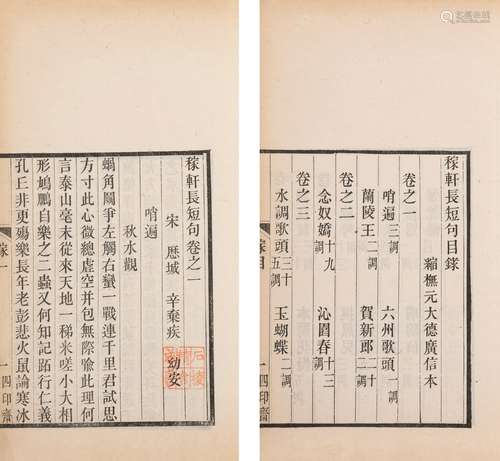 稼軒長短句目錄
縮橅元大德廣信本
卷之一
哨遍三調 六州歌頭一調
蘭陵王二調 賀新郎二十調
卷之二
念奴嬌十九調 沁園春十三調
卷之三
水調歌頭三十五調 玉蝴蝶二調
稼目 一 四印齋
稼軒長短句卷之一
宋 歷城 辛棄疾 幼安
哨遍
秋水觀
蝸角鬭爭左觸右蠻一戰連千里君試思
方寸此心微總虛空并包無際喻此理何
言泰山毫末從來天地一稊米嗟小大相
形鳩鵬自樂之二蟲又何知記跖行仁義
孔丘非更殤樂長年老彭悲火鼠論寒冰
稼一 一 四印齋